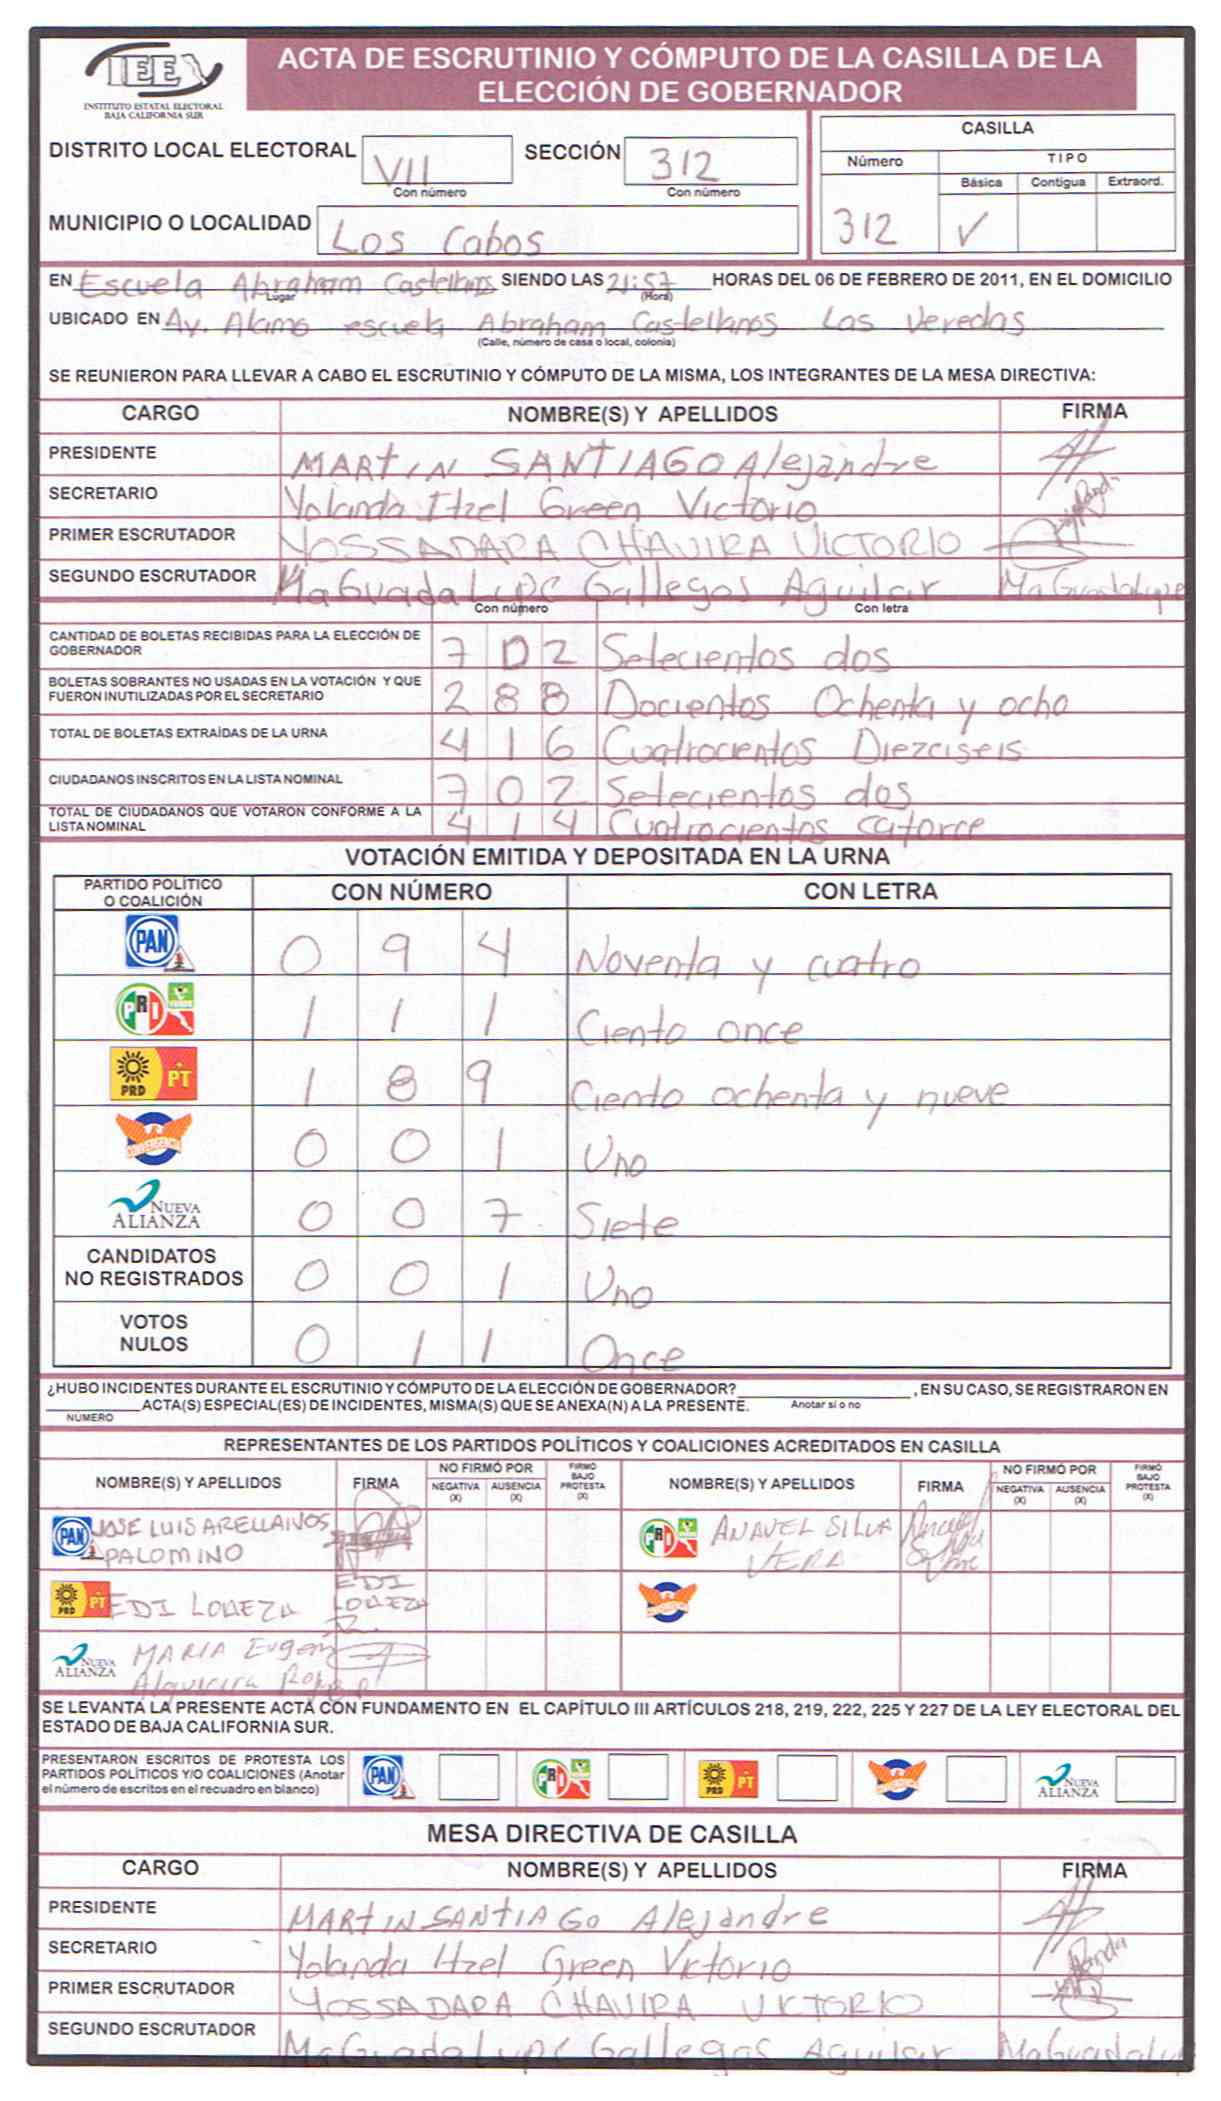 IEE
INSTITUTO ESTATAL ELECTORAL
BAJA CALIFORNIA SUR
ACTA DE ESCRUTINIO Y CÓMPUTO DE LA CASILLA DE LA
ELECCIÓN DE GOBERNADOR
DISTRITO LOCAL ELECTORAL VII SECCIÓN 312
Con número Con número
MUNICIPIO O LOCALIDAD Los Cabos
CASILLA
Número TIPO
Básica Contigua Extraord.
312 ✓
EN Escuela Abraham Castellanos SIENDO LAS 21:57 HORAS DEL 06 DE FEBRERO DE 2011, EN EL DOMICILIO
Lugar (Hora)
UBICADO EN Av. Alamo escuela Abraham Castellanos Las Veredas
(Calle, número de casa o local, colonia)
SE REUNIERON PARA LLEVAR A CABO EL ESCRUTINIO Y CÓMPUTO DE LA MISMA, LOS INTEGRANTES DE LA MESA DIRECTIVA:
CARGO NOMBRE(S) Y APELLIDOS FIRMA
PRESIDENTE MARTIN SANTIAGO Alejandre
SECRETARIO Yolanda Itzel Green Victorio
PRIMER ESCRUTADOR YOSSADARA CHAVIRA VICTORIO
SEGUNDO ESCRUTADOR MaGuadaLupe Gallegos Aguilar MaGuadalupe
Con número Con letra
CANTIDAD DE BOLETAS RECIBIDAS PARA LA ELECCIÓN DE
GOBERNADOR 702 Setecientos dos
BOLETAS SOBRANTES NO USADAS EN LA VOTACIÓN Y QUE
FUERON INUTILIZADAS POR EL SECRETARIO 288 Docientos Ochenta y ocho
TOTAL DE BOLETAS EXTRAÍDAS DE LA URNA 416 Cuatrocientos Diezciseis
CIUDADANOS INSCRITOS EN LA LISTA NOMINAL 702 Setecientos dos
TOTAL DE CIUDADANOS QUE VOTARON CONFORME A LA
LISTA NOMINAL 414 Cuatrocientos catorce
VOTACIÓN EMITIDA Y DEPOSITADA EN LA URNA
PARTIDO POLÍTICO
O COALICIÓN CON NÚMERO CON LETRA
PAN 0 9 4 Noventa y cuatro
PRI VERDE 1 1 1 Ciento once
PRD PT 1 8 9 Ciento ochenta y nueve
CONVERGENCIA 0 0 1 Uno
NUEVA
ALIANZA 0 0 7 Siete
CANDIDATOS
NO REGISTRADOS 0 0 1 Uno
VOTOS
NULOS 0 1 1 Once
¿HUBO INCIDENTES DURANTE EL ESCRUTINIO Y CÓMPUTO DE LA ELECCIÓN DE GOBERNADOR? , EN SU CASO, SE REGISTRARON EN
ACTA(S) ESPECIAL(ES) DE INCIDENTES, MISMA(S) QUE SE ANEXA(N) A LA PRESENTE. Anotar sí o no
NÚMERO
REPRESENTANTES DE LOS PARTIDOS POLÍTICOS Y COALICIONES ACREDITADOS EN CASILLA
NOMBRE(S) Y APELLIDOS FIRMA NO FIRMÓ POR NEGATIVA (X) AUSENCIA (X) FIRMÓ BAJO PROTESTA (X) NOMBRE(S) Y APELLIDOS FIRMA NO FIRMÓ POR NEGATIVA (X) AUSENCIA (X) FIRMÓ BAJO PROTESTA (X)
PAN JOSE LUIS ARELLANOS PRI ANAVEL SILVA
PALOMINO VERA
PRD PT EDI LOAEZA EDI LOAEZA
NUEVA
ALIANZA MARIA Eugen
SE LEVANTA LA PRESENTE ACTA CON FUNDAMENTO EN EL CAPÍTULO III ARTÍCULOS 218, 219, 222, 225 Y 227 DE LA LEY ELECTORAL DEL
ESTADO DE BAJA CALIFORNIA SUR.
PRESENTARON ESCRITOS DE PROTESTA LOS
PARTIDOS POLÍTICOS Y/O COALICIONES (Anotar
el número de escritos en el recuadro en blanco) PAN PRI PRD PT NUEVA ALIANZA
MESA DIRECTIVA DE CASILLA
CARGO NOMBRE(S) Y APELLIDOS FIRMA
PRESIDENTE MARTIN SANTIAGO Alejandre
SECRETARIO Yolanda Itzel Green Victorio
PRIMER ESCRUTADOR YOSSADARA CHAVIRA VICTORIO
SEGUNDO ESCRUTADOR MaGuadaLupe Gallegos Aguilar MaGuadalup